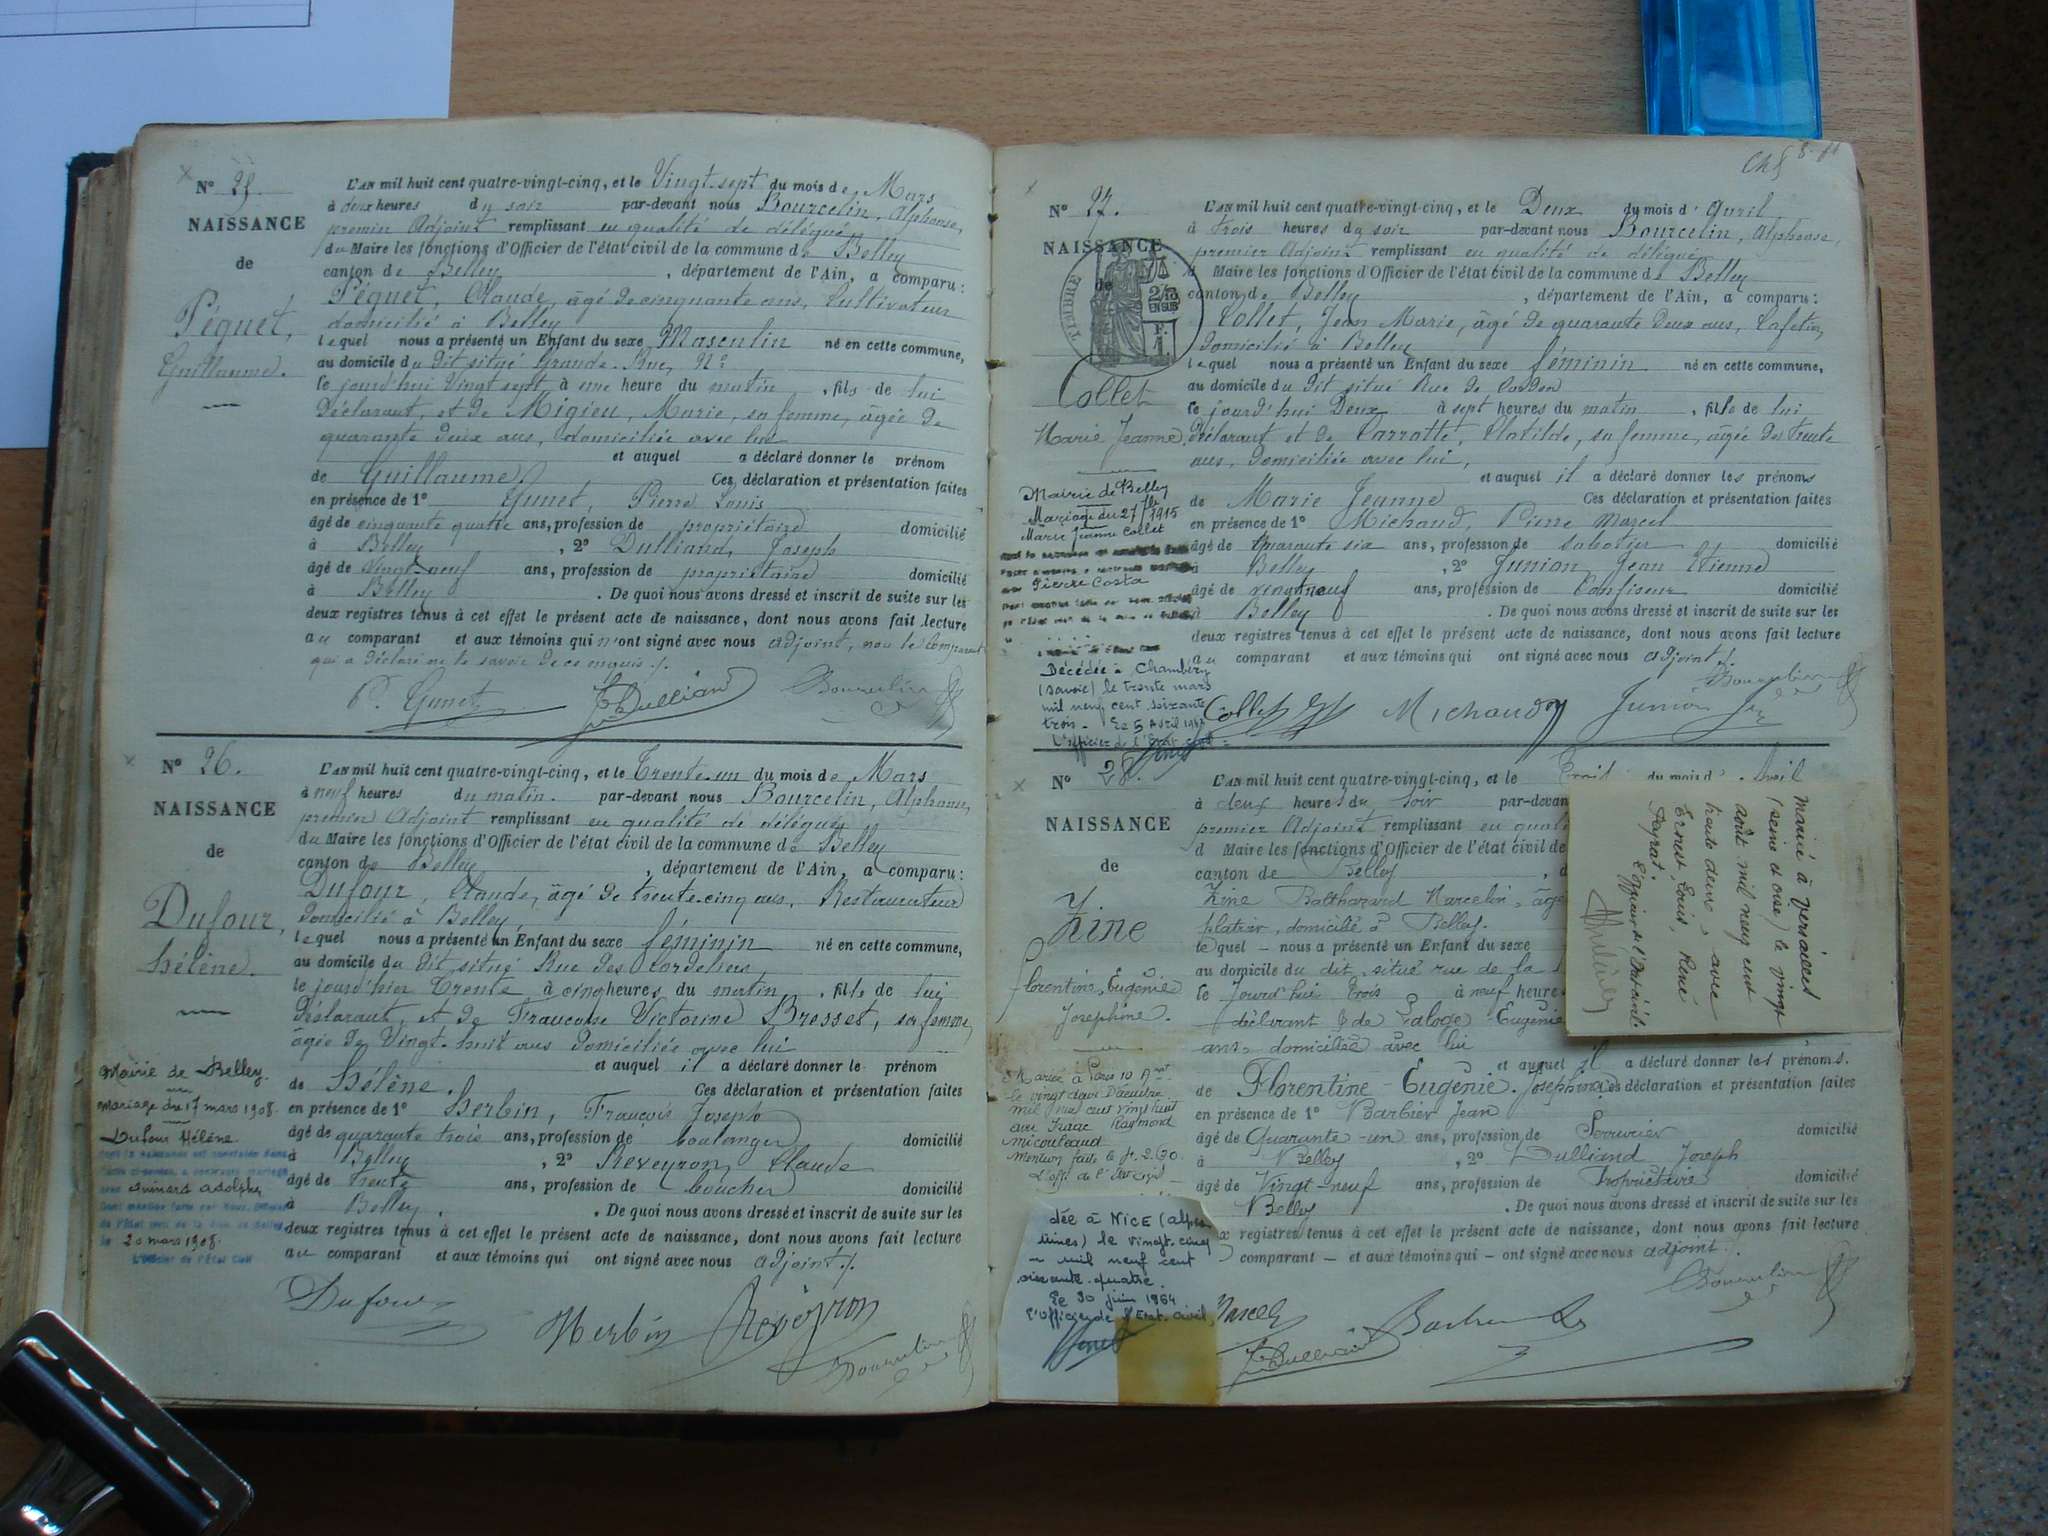 N° 25.
NAISSANCE
de
Péguet,
Guillaume.
L'AN mil huit cent quatre-vingt-cinq, et le Vingt-sept du mois de Mars
à deux heures du soir par-devant nous Bourcelin, Alphonse,
premier Adjoint remplissant en qualité de délégué
du Maire les fonctions d'Officier de l'état civil de la commune de Belley
canton de Belley, département de l'Ain, a comparu :
Péguet, Claude, âgé de cinquante ans, Cultivateur
domicilié à Belley
lequel nous a présenté un Enfant du sexe Masculin né en cette commune,
au domicile du dit situé Grande Rue, N°
le jourd'hui Vingt sept à une heure du matin, fils de lui
Déclarant, et de Migieu, Marie, sa femme, âgée de
quarante deux ans, domiciliée avec lui
et auquel a déclaré donner le prénom
de Guillaume. Ces déclaration et présentation faites
en présence de 1° Gunet, Pierre Louis
âgé de cinquante quatre ans, profession de propriétaire domicilié
à Belley, 2° Dulliand, Joseph
âgé de vingt-neuf ans, profession de propriétaire domicilié
à Belley. De quoi nous avons dressé et inscrit de suite sur les
deux registres tenus à cet effet le présent acte de naissance, dont nous avons fait lecture
au comparant et aux témoins qui n'ont signé avec nous adjoint, non le comparant
qui a déclaré ne le savoir de ce enquis ./.
P. Gunet J. Dulliand Bourcelin
N° 26.
NAISSANCE
de
Dufour,
Hélène.
Mairie de Belley.
Mariage du 17 mars 1908.
Dufour Hélène.
avec Guinard Adolphe
le 20 mars 1908.
L'Officier de l'Etat Civil
L'AN mil huit cent quatre-vingt-cinq, et le Trente-un du mois de Mars
à neuf heures du matin. par-devant nous Bourcelin, Alphonse,
premier Adjoint remplissant en qualité de délégué
du Maire les fonctions d'Officier de l'état civil de la commune de Belley
canton de Belley, département de l'Ain, a comparu :
Dufour, Claude, âgé de trente-cinq ans, Restaurateur
domicilié à Belley
lequel nous a présenté un Enfant du sexe féminin né en cette commune,
au domicile du dit situé Rue des Cordeliers
le jourd'hier Trente à cinq heures du matin, fille de lui
Déclarant, et de Françoise Victorine Brosset, sa femme,
âgée de Vingt-huit ans domiciliée avec lui
et auquel il a déclaré donner le prénom
de Hélène. Ces déclaration et présentation faites
en présence de 1° Herbin, François Joseph
âgé de quarante trois ans, profession de boulanger domicilié
à Belley, 2° Reveyron, Claude
âgé de Trente ans, profession de boucher domicilié
à Belley. De quoi nous avons dressé et inscrit de suite sur les
deux registres tenus à cet effet le présent acte de naissance, dont nous avons fait lecture
au comparant et aux témoins qui ont signé avec nous adjoint ./.
Dufour Herbin Reveyron Bourcelin
N° 27.
NAISSANCE
de
TIMBRE
2/10 EN SUS
F. 1
Collet
Marie Jeanne
Mairie de Belley
Mariage du 27 fév 1915
Marie Jeanne Collet
Pierre Costa
Décédée à Chambéry
(Savoie) le trente mars
mil neuf cent soixante
trois. Le 5 Avril 1963
L'officier de l'Etat civil
L'AN mil huit cent quatre-vingt-cinq, et le Deux du mois d'Avril
à trois heures du soir par-devant nous Bourcelin, Alphonse,
premier Adjoint remplissant en qualité de délégué
d Maire les fonctions d'Officier de l'état civil de la commune de Belley
canton de Belley, département de l'Ain, a comparu :
Collet, Jean Marie, âgé de quarante deux ans, Cafetier,
domicilié à Belley
lequel nous a présenté un Enfant du sexe féminin né en cette commune,
au domicile du dit situé Rue de
le jourd'hui Deux à sept heures du matin, fille de lui
Déclarant et de Carrotte, Clotilde, sa femme, âgée de trente
ans, domiciliée avec lui,
et auquel il a déclaré donner les prénoms
de Marie Jeanne Ces déclaration et présentation faites
en présence de 1° Michaud, Pierre Marcel
âgé de quarante six ans, profession de sabotier domicilié
à Belley, 2° Junion, Jean Etienne
âgé de vingt neuf ans, profession de Confiseur domicilié
à Belley. De quoi nous avons dressé et inscrit de suite sur les
deux registres tenus à cet effet le présent acte de naissance, dont nous avons fait lecture
au comparant et aux témoins qui ont signé avec nous adjoint ./.
Collet Michaud Junion Bourcelin
N° 28.
NAISSANCE
de
Zine
Florentine, Eugénie
Joséphine.
Mariée à Paris 10 Arrt
le vingt deux Décembre
mil neuf cent vingt huit
avec Isaac Raymond
Micouleaud
Mention faite le
L'offic. de l'Etat civil
dée à NICE (alpes
times) le vingt-cinq
mil neuf cent
soixante-quatre.
Le 30 juin 1964
L'officier de l'Etat-civil,
L'AN mil huit cent quatre-vingt-cinq, et le Trois du mois d'Avril
à deux heures du soir par-devan
premier Adjoint remplissant en qual
d Maire les fonctions d'Officier de l'état civil de
canton de Belley, d
Zine Balthazard Marcelin, âgé
platrier, domicilié à Belley.
lequel nous a présenté un Enfant du sexe
au domicile du dit, situé rue de la
le jourd'hui trois à neuf heures
déclarant & de Laloge Eugénie
ans, domiciliée avec lui
et auquel il a déclaré donner les prénoms.
de Florentine-Eugénie-Joséphine Ces déclaration et présentation faites
en présence de 1° Barbier Jean
âgé de Quarante-un ans, profession de Serrurier domicilié
à Belley, 2° Dulliand Joseph
âgé de Vingt-neuf ans, profession de Propriétaire domicilié
Belley. De quoi nous avons dressé et inscrit de suite sur les
x registres tenus à cet effet le présent acte de naissance, dont nous avons fait lecture
comparant — et aux témoins qui — ont signé avec nous adjoint ./.
Marcelin J. Dulliand Barbier Bourcelin
Marié à Versailles
(seine et oise) le vingt
août mil neuf cent
trente deux avec
Ernest, Louis, René
Payrat.
L'Officier de l'Etat civil.